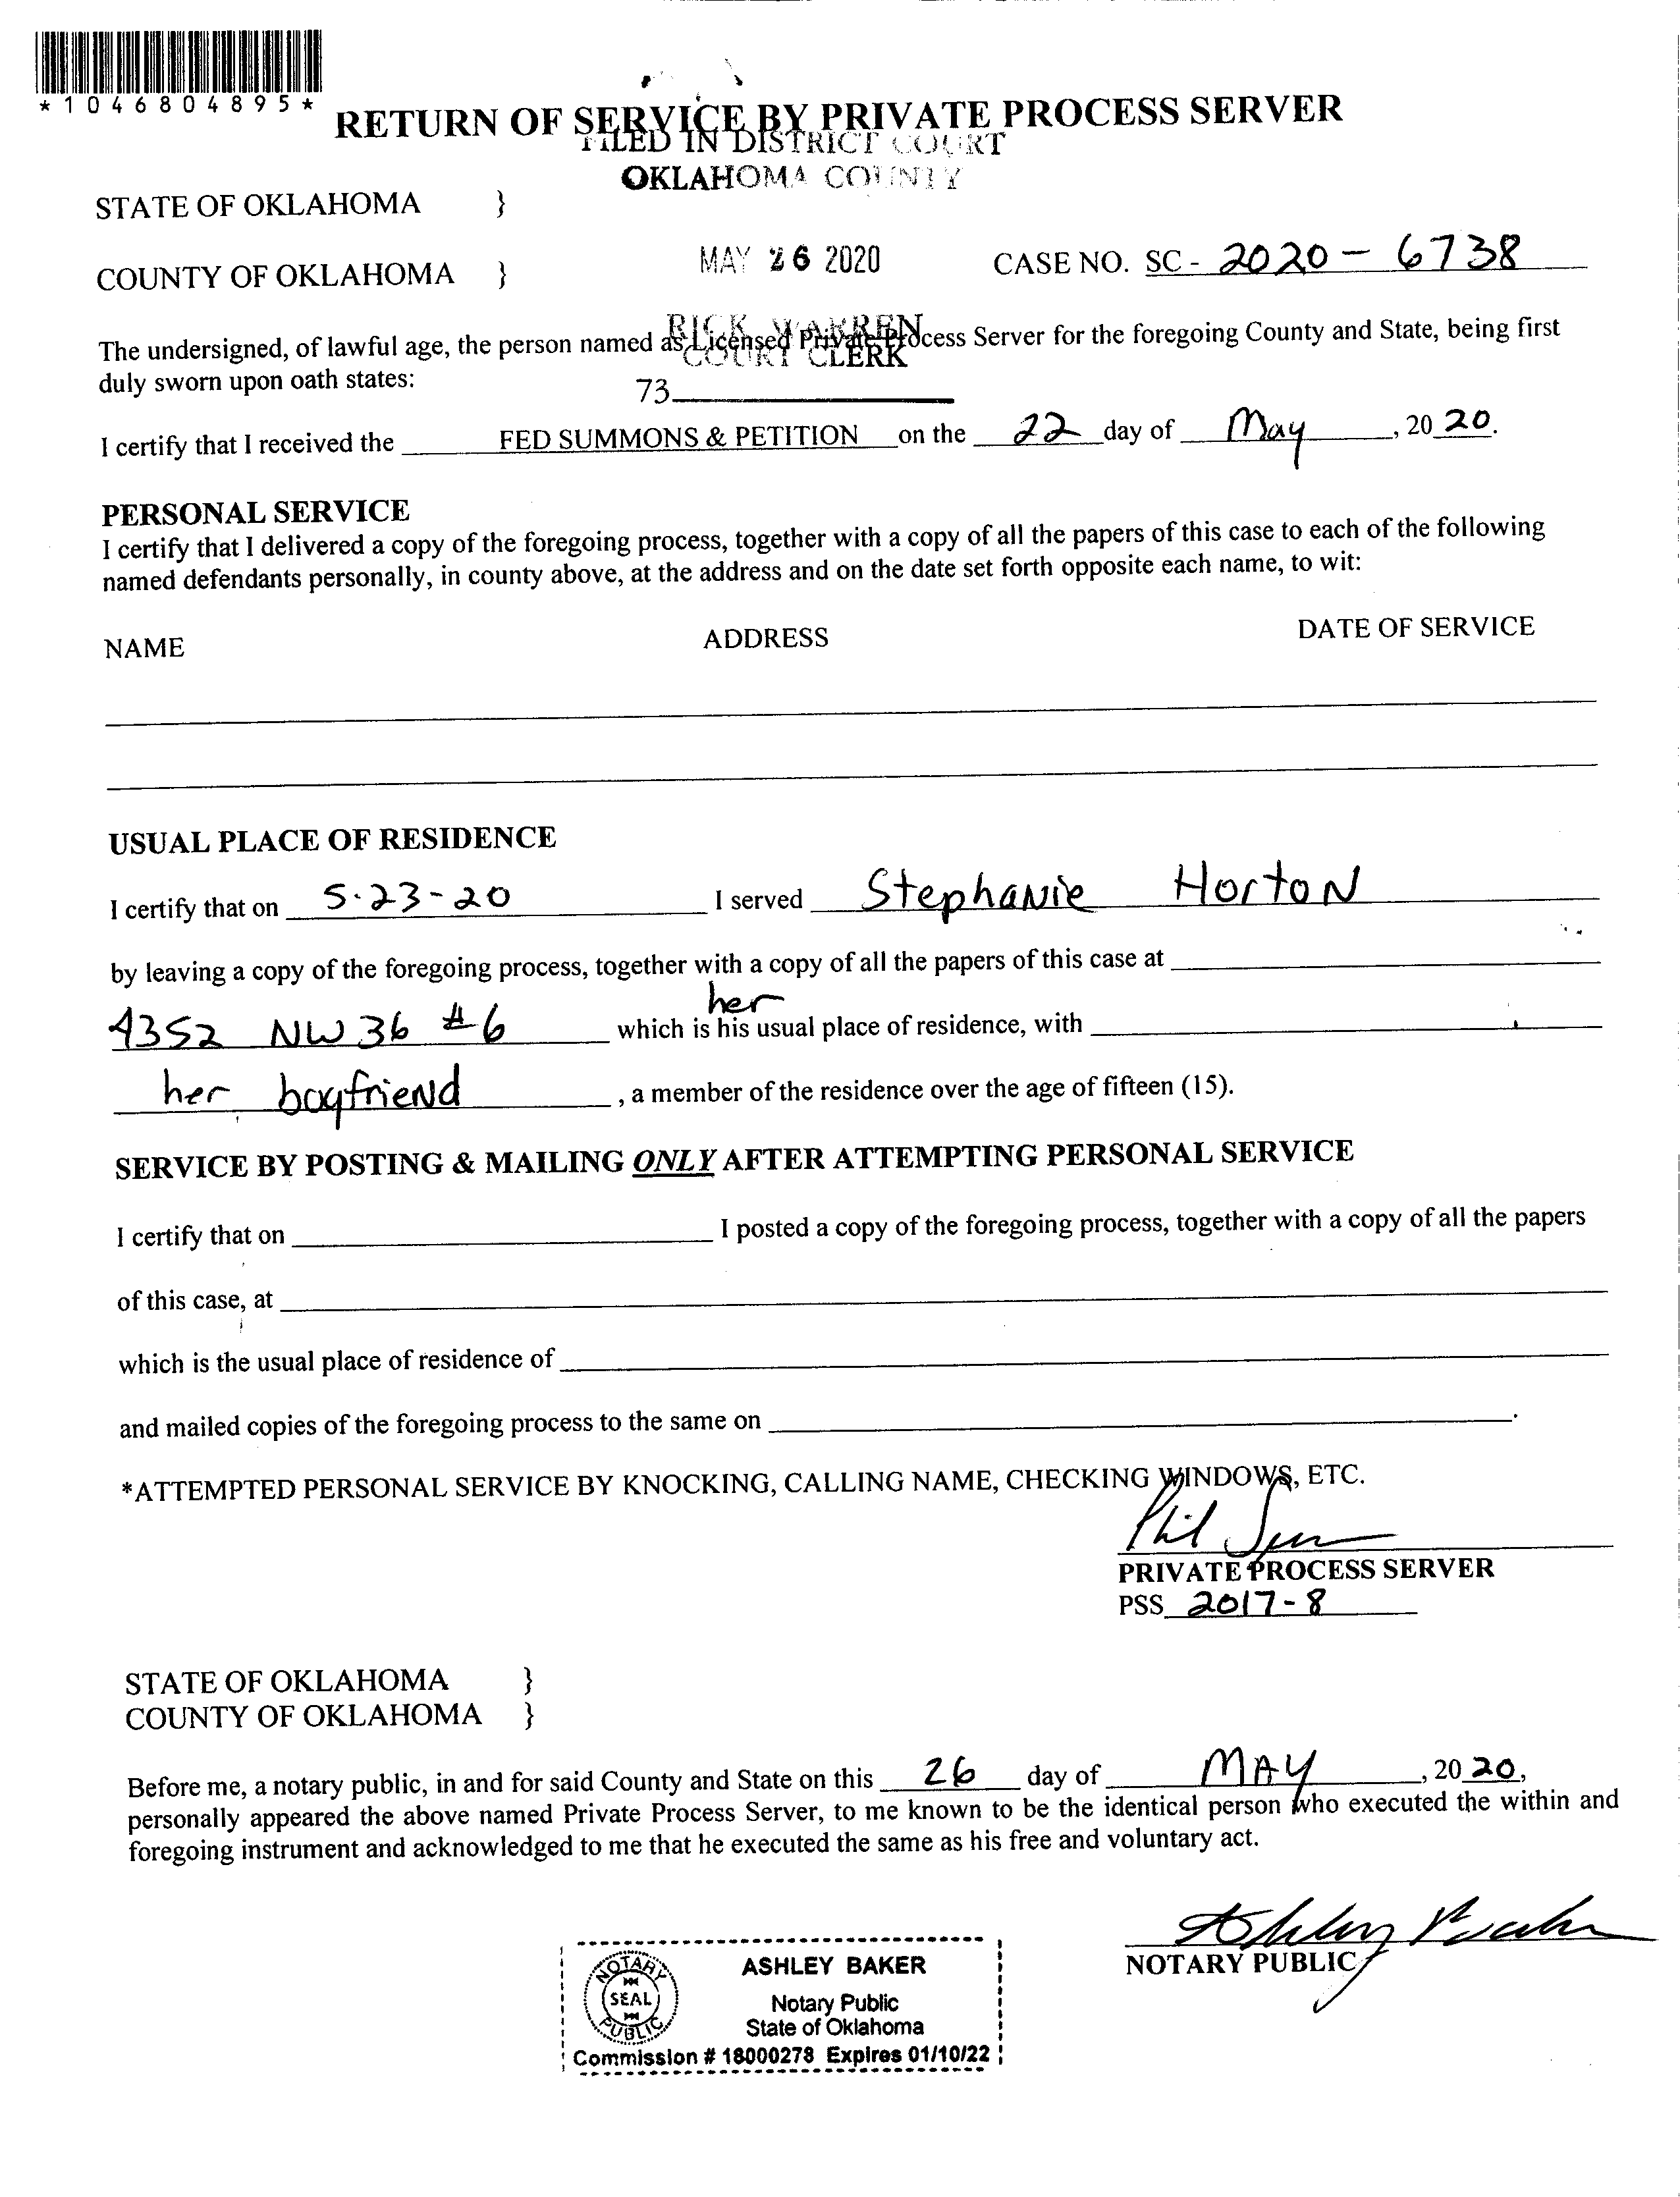 *1046804895*
RETURN OF SERVICE BY PRIVATE PROCESS SERVER
FILED IN DISTRICT COURT
OKLAHOMA COUNTY
STATE OF OKLAHOMA }
MAY 26 2020
COUNTY OF OKLAHOMA } CASE NO. SC - 2020 - 6738
RICK WARREN
COURT CLERK
The undersigned, of lawful age, the person named as Licensed Private Process Server for the foregoing County and State, being first
duly sworn upon oath states:
73
I certify that I received the FED SUMMONS & PETITION on the 22 day of May, 20 20.
PERSONAL SERVICE
I certify that I delivered a copy of the foregoing process, together with a copy of all the papers of this case to each of the following
named defendants personally, in county above, at the address and on the date set forth opposite each name, to wit:
NAME ADDRESS DATE OF SERVICE
USUAL PLACE OF RESIDENCE
I certify that on 5-23-20 I served Stephanie Horton
by leaving a copy of the foregoing process, together with a copy of all the papers of this case at
her
4352 NW 36 #6 which is his usual place of residence, with
her boyfriend, a member of the residence over the age of fifteen (15).
SERVICE BY POSTING & MAILING ONLY AFTER ATTEMPTING PERSONAL SERVICE
I certify that on I posted a copy of the foregoing process, together with a copy of all the papers
of this case, at
which is the usual place of residence of
and mailed copies of the foregoing process to the same on .
*ATTEMPTED PERSONAL SERVICE BY KNOCKING, CALLING NAME, CHECKING WINDOWS, ETC.
Phil
PRIVATE PROCESS SERVER
PSS 2017-8
STATE OF OKLAHOMA }
COUNTY OF OKLAHOMA }
Before me, a notary public, in and for said County and State on this 26 day of MAY, 20 20,
personally appeared the above named Private Process Server, to me known to be the identical person who executed the within and
foregoing instrument and acknowledged to me that he executed the same as his free and voluntary act.
Ashley Baker
NOTARY PUBLIC
NOTARY
SEAL
PUBLIC
ASHLEY BAKER
Notary Public
State of Oklahoma
Commission # 18000278 Expires 01/10/22